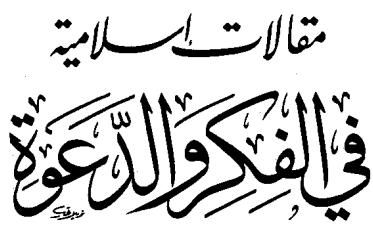 مقالات إسلامية
في الفِكرِ وَالدَّعوَةِ